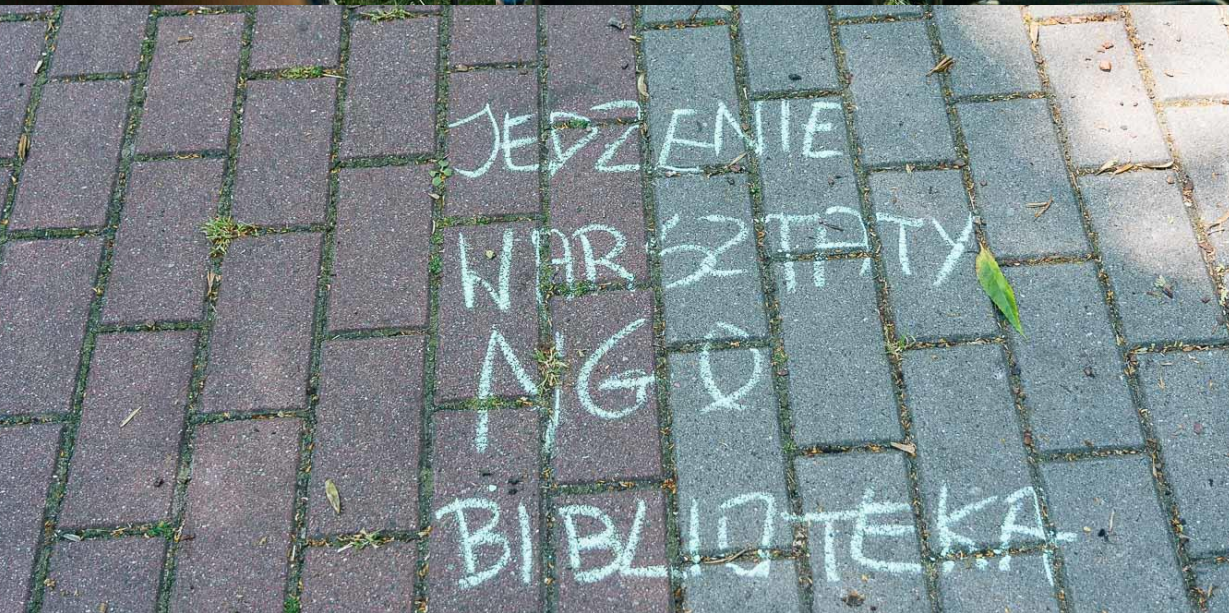 JEDZENIE
WARSZTATY
NGO
BIBLIOTEKA